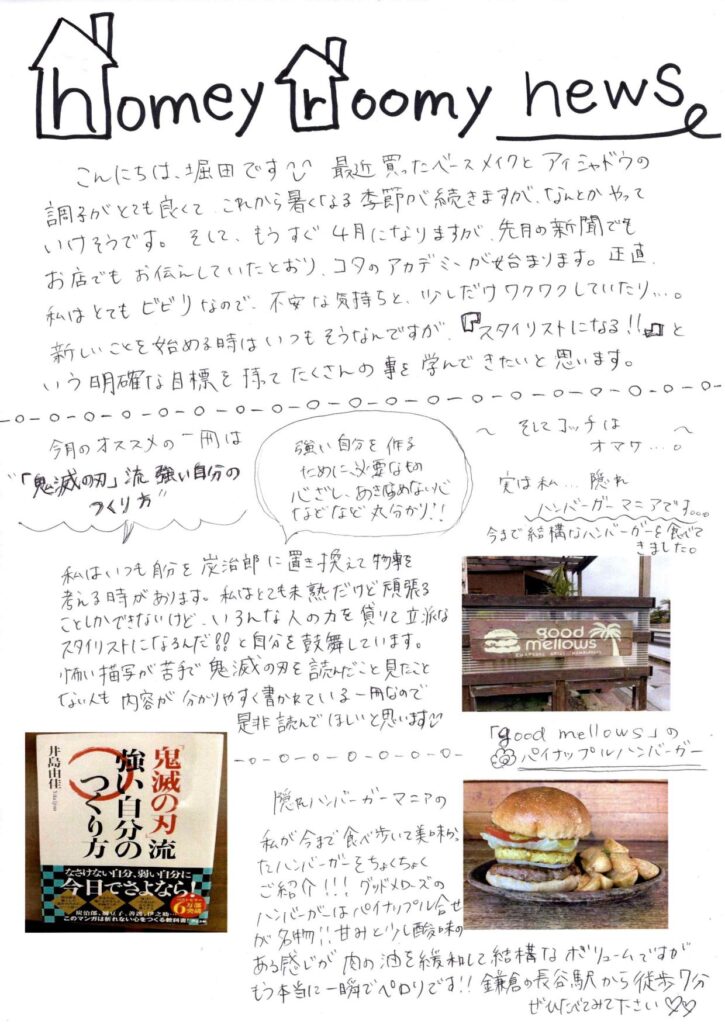 homey roomy news
こんにちは、堀田です 最近買ったベースメイクとアイシャドウの
調子がとても良くて、これから暑くなる季節が続きますが、なんとかやって
いけそうです。そして、もうすぐ4月になりますが、先月の新聞でも
お店でもお伝えしていたとおり、コタのアカデミーが始まります。正直、
私はとてもビビリなので、不安な気持ちと、少しだけワクワクしていたり…。
新しいことを始める時はいつもそうなんですが、『スタイリストになる!!』と
いう明確な目標を持ってたくさんの事を学んできたいと思います。
今月のオススメの一冊は
"「鬼滅の刃」流 強い自分の
つくり方"
強い自分を作る
ために必要なもの
心ざし、あきらめない心
などなど丸分かり!!
私はいつも自分を炭治郎に置き換えて物事を
考える時があります。私はとても未熟だけど頑張る
ことしかできないけど、いろんな人の力を貸りて立派な
スタイリストになるんだ!!と自分を鼓舞しています。
怖い描写が苦手で鬼滅の刃を読んだこと見たこと
ない人も内容が分かりやすく書かれている一冊なので
是非読んでほしいと思います
井島由佳
「鬼滅の刃」流
強い自分の
つくり方
なさけない自分、弱い自分に
今日でさよなら!
6万部
突破
炭治郎、禰豆子、善逸、伊之助…
このマンガは折れない心をつくる教科書!
〜 そしてコッチは 〜
オマケ…。
実は私… 隠れ
ハンバーガーマニアです。。。
今まで結構なハンバーガーを食べて
きました。
good
mellows
「good mellows」の
パイナップルハンバーガー
隠れハンバーガーマニアの
私が今まで食べ歩いて美味かっ
たハンバーガーをちょくちょく
ご紹介!!! グッドメローズの
ハンバーガーはパイナップル合せ
が名物!! 甘みと少し酸味の
ある感じが肉の油を緩和して結構なボリュームですが
もう本当に一瞬でペロリです!! 鎌倉の長谷駅から徒歩7分
ぜひ食べてみて下さい♡♡